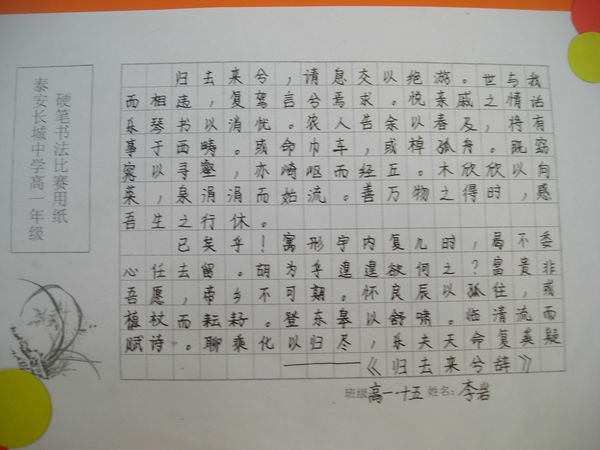 硬笔书法比赛用纸
泰安长城中学高一年级
归去来兮，请息交以绝游。世与我
而相违，复驾言兮焉求。悦亲戚之情话
乐琴书以消忧。农人告余以春及，将有
事于西畴。或命巾车，或棹孤舟。既窈
窕以寻壑，亦崎岖而经丘。木欣欣以向
荣，泉涓涓而始流。善万物之得时，感
吾生之行休。
已矣乎！寓形宇内复几时，曷不委
心任去留。胡为乎遑遑欲何之？富贵非
吾愿，帝乡不可期。怀良辰以孤往，或
植杖而耘耔。登东皋以舒啸。临清流而
赋诗。聊乘化以归尽，乐夫天命复奚疑
———《归去来兮辞》
班级高一·十五姓名：李岩